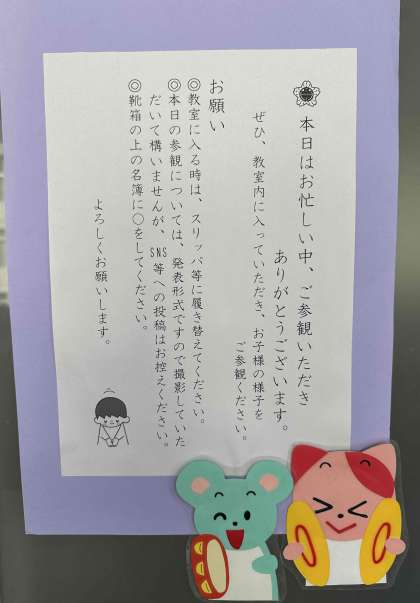 本日はお忙しい中、ご参観いただき
ありがとうございます。
ぜひ、教室内に入っていただき、お子様の様子を
ご参観ください。
お願い
◎教室に入る時は、スリッパ等に履き替えてください。
◎本日の参観については、発表形式ですので撮影していた
だいて構いませんが、SNS等への投稿はお控えください。
◎靴箱の上の名簿に○をしてください。
よろしくお願いします。